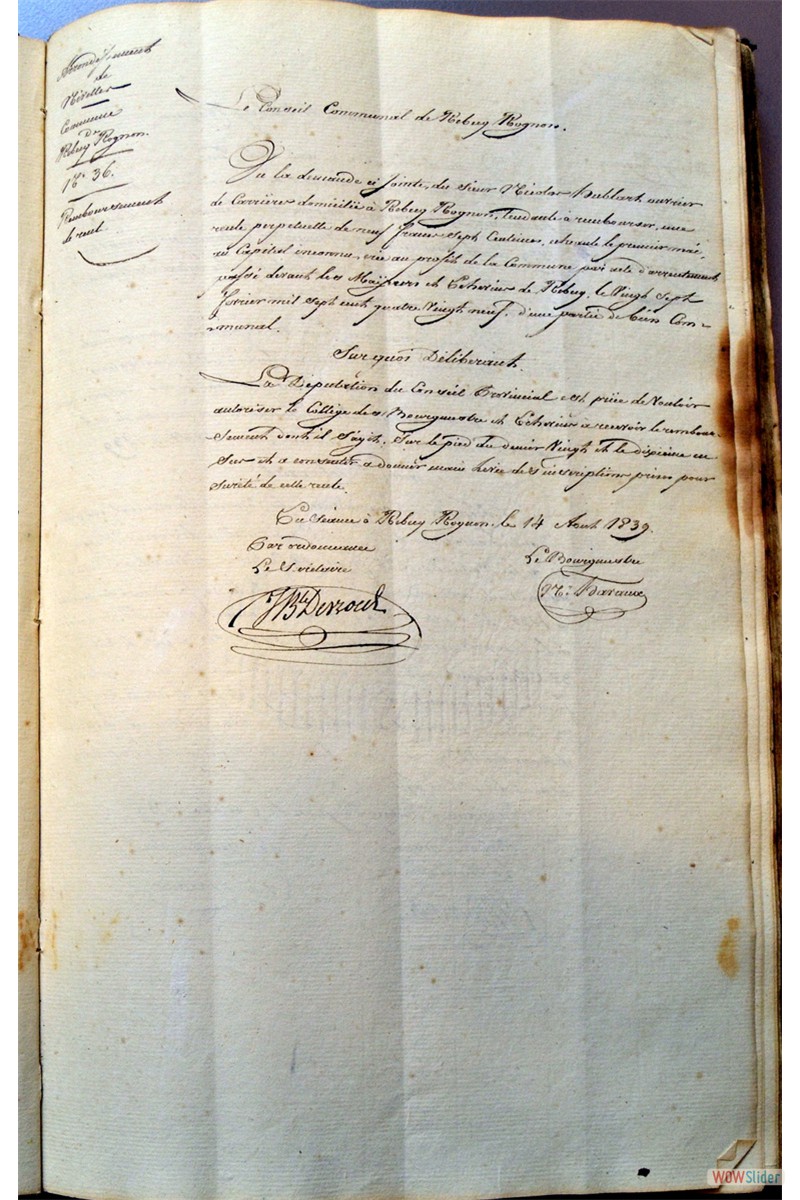 Arrondissement
de
Nivelles
Commune
de
Rebecq Rognon.
N° 36.
Remboursement
de rente
Le Conseil Communal de Rebecq Rognon.
Vu la demande ci jointe, du sieur Nicolas Hablart ouvrier
de Carrières domicilié à Rebecq Rognon, tendante à rembourser, une
rente perpetuelle de neuf francs Sept Centimes, échéante le premier mai,
au Capital inconnu, créé au profit de la Commune par acte d'arrentement
passé devant les Mayeurs et Echevins de Rebecq, le Vingt Sept
fevrier mil sept cent quatre Vingt neuf, d'une partie de bien Com-
munal.
Sur quoi Déliberant.
La Députation du Conseil Provincial est priée de Vouloir
autoriser le Collège des Bourgmestre et Echevins à recevoir le rembour-
sement dont il s'agit, Sur le pied du denier Vingt et le dixième en
Sus et à consentir à donner main levée des inscriptions prises pour
sureté de cette rente.
En Séance à Rebecq Rognon, le 14 Aout 1839.
Par ordonnance
Le Secrétaire
Le Bourgmestre
WOWSlider